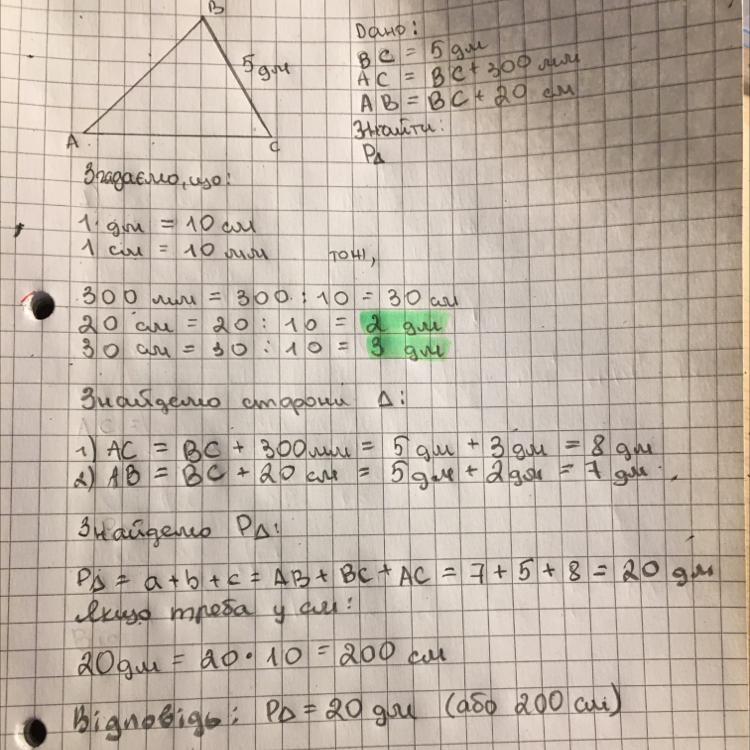 B
5 дм
A
C
Дано:
BC = 5 дм
AC = BC + 300 мм
AB = BC + 20 см
Знайти:
P∆
Згадаємо, що:
1 дм = 10 см
1 см = 10 мм тоді,
300 мм = 300 : 10 = 30 см
20 см = 20 : 10 = 2 дм
30 см = 30 : 10 = 3 дм
Знайдемо сторони ∆:
1) AC = BC + 300мм = 5 дм + 3 дм = 8 дм
2) AB = BC + 20 см = 5 дм + 2 дм = 7 дм.
Знайдемо P∆:
P∆ = a + b + c = AB + BC + AC = 7 + 5 + 8 = 20 дм
Якщо треба у см:
20 дм = 20 • 10 = 200 см
Відповідь: P∆ = 20 дм (або 200 см)